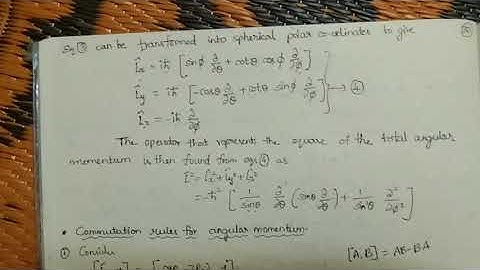 Eq ③ can be transformed into spherical polar co-ordinates to give
L̂x = iħ [sinϕ ∂/∂θ + cotθ cosϕ ∂/∂ϕ]
L̂y = iħ [-cosϕ ∂/∂θ + cotθ sinϕ ∂/∂ϕ] → ④
L̂z = -iħ ∂/∂ϕ
The operator that represents the square of the total angular
momentum is then found from eqs ④ as
L̂² = L̂x² + L̂y² + L̂z²
= -ħ² [1/sinθ ∂/∂θ (sinθ ∂/∂θ) + 1/sin²θ ∂²/∂ϕ²]
• Commutation rules for angular momentum.
① Consider [A,B] = AB-BA